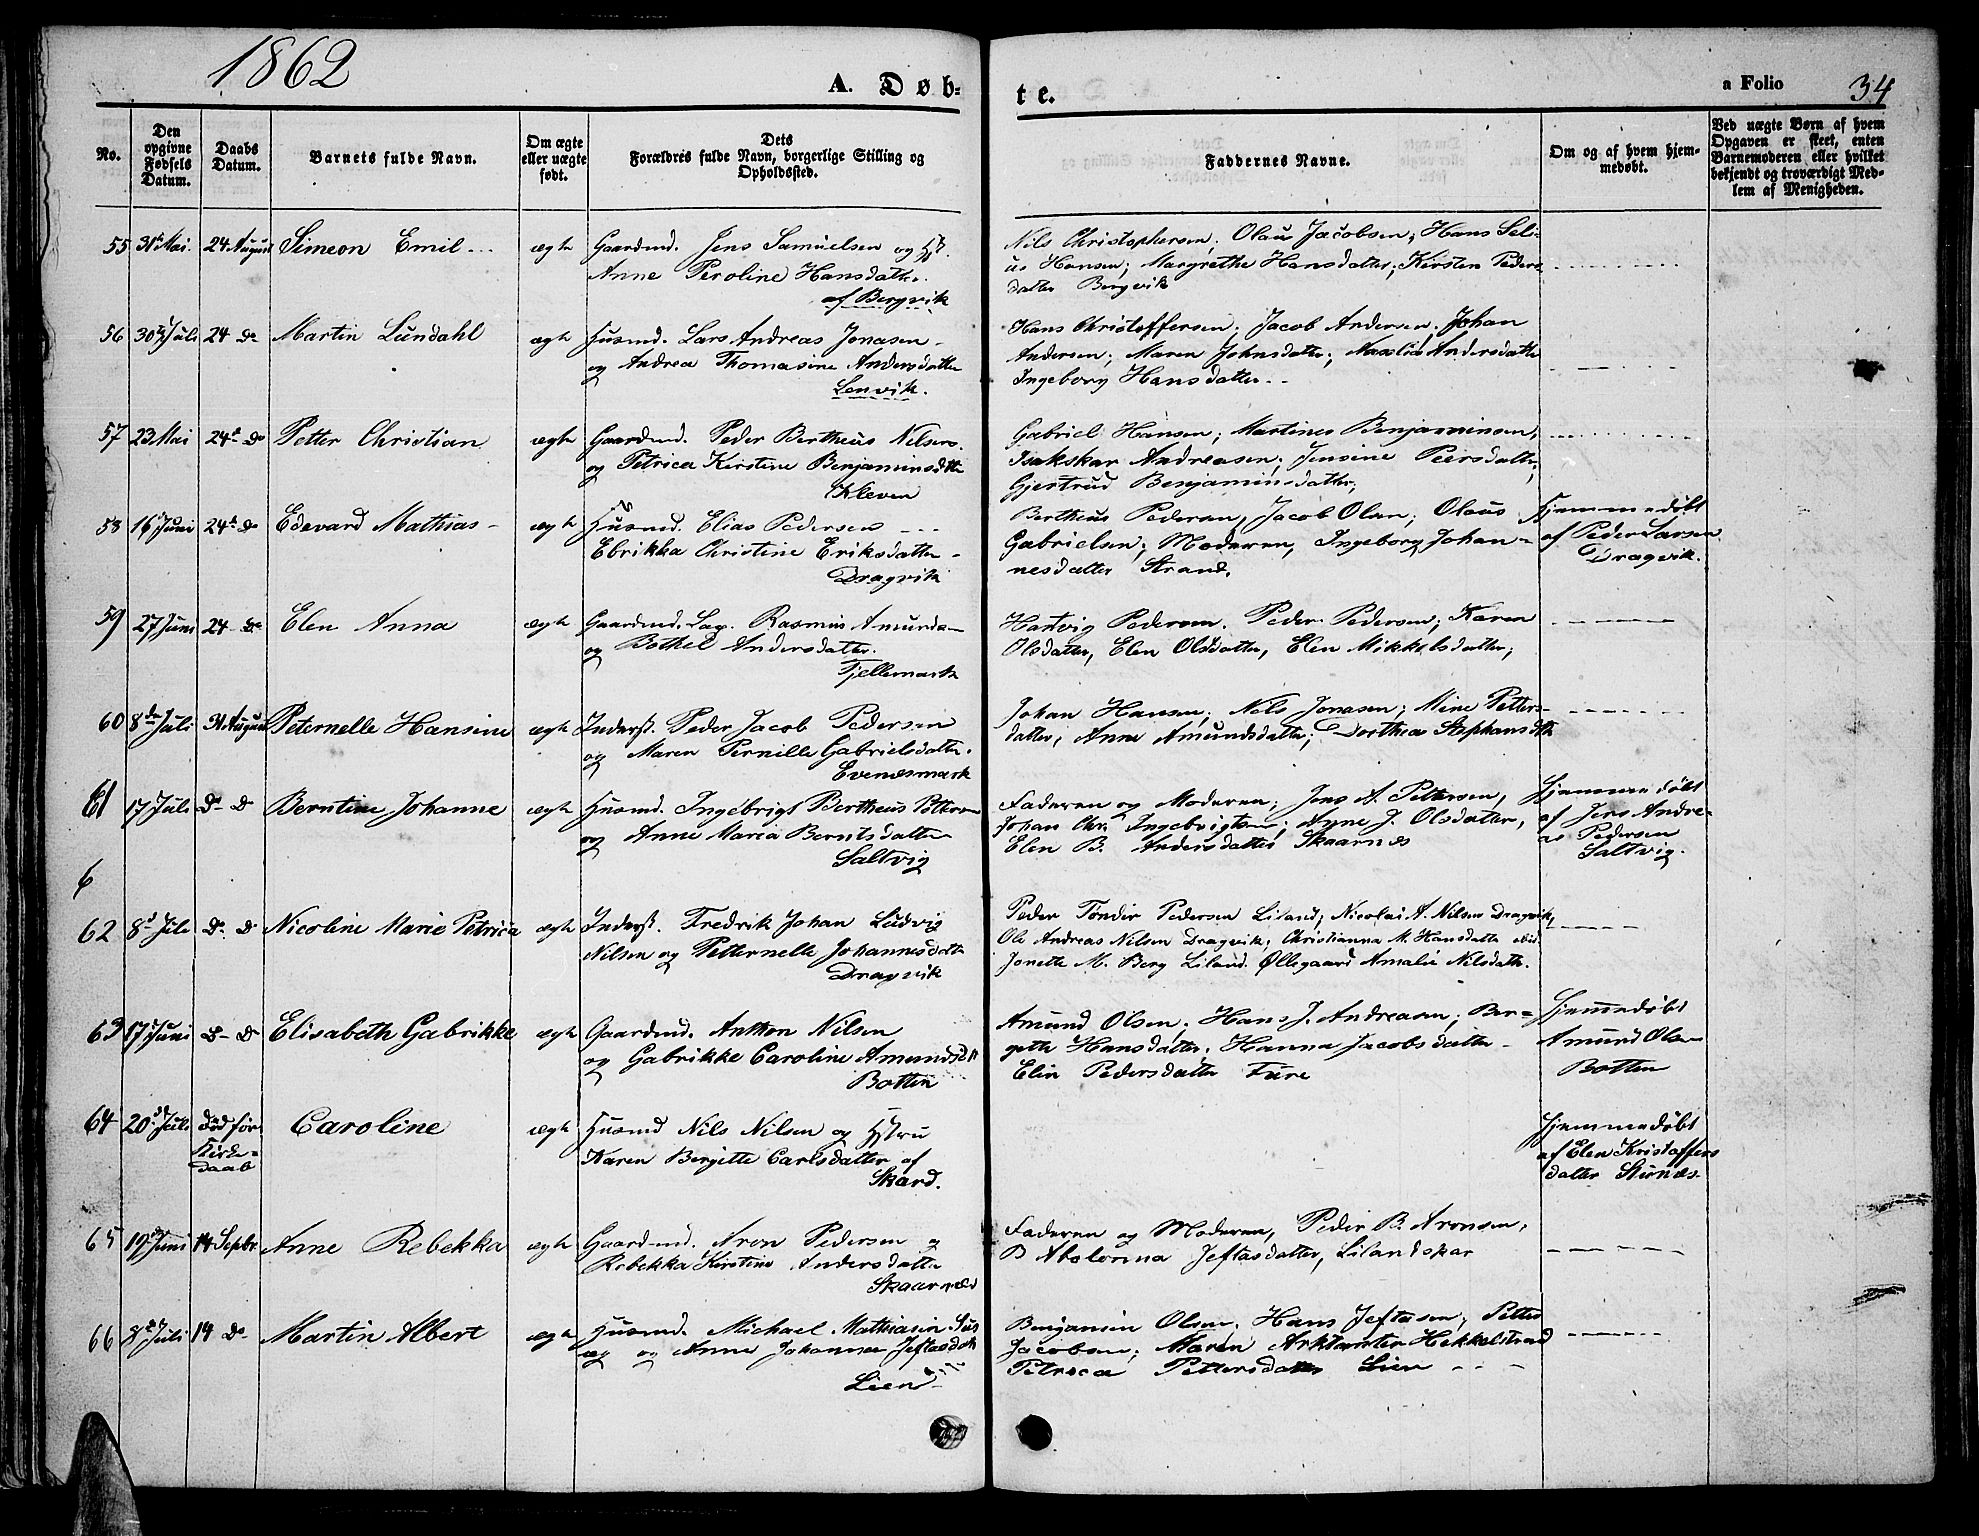 1862
A. Døb-
te.
a Folio 34
No.
Den opgivne Fødsels Datum.
Daabs Datum.
Barnets fulde Navn.
Om ægte eller uægte født.
Dets Forældres fulde Navn, borgerlige Stilling og Opholdssted.
Faddernes Navne.
Om og af hvem hjem-
medøbt.
Ved uægte Børn af hvem
Opgaven er skeet, enten
Barnemoderen eller hvilket
bekjendt og troværdigt Med-
lem af Menigheden.
55 31 Mai. 24 August Simeon Emil ægte Gaardmd. Jens Samuelsen og
Anne Peroline Hansdatter
af Bergvik
Nils Christophersen; Olaus Jacobsen; Hans Seli-
us Hansen; Margrethe Hansdatter; Kirsten Peders
datter Bergvik
56 30 Juli 24 de Martin Lundahl ægte Husmd. Lars Andreas Jonasen
og Andrea Thomasine Andersdatter
Lenvik.
Hans Christoffersen; Jacob Andersen. Johan
Andersen; Maren Johnsdatter; Andersdatter
Ingeborg Hansdatter
57 23 Mai 24 de Petter Christian ægte Gaardmd. Peder Bertheus Nilsen
og Petrica Kirstine Benjaminsdtt
Kleven
Gabriel Hansen; Martines Benjaminsen,
Isakskar Andreasen; Jensine Peersdatter,
Gjertrud Benjaminsdatter;
58 16 Juni 24 de Edevard Mathias ægte Husmd. Elias Pedersen
Ebrikka Christine Eriksdatter
Dragvik
Bertheus Pedersen, Jacob Olsen; Olaus
Gabrielsen; Moderen, Ingeborg Johan-
nesdatter Strand.
Hjemmedøbt
af Peder Larsen
Dragvik.
59 27 Juni 24 de Elen Anna ægte Gaardmd. Lap. Rasmus Amunds
og Bothel Andersdatter.
Fjellemark
Hartvig Pedersen. Peder Pedersen; Karen
Olsdatter, Elen Olsdatter, Elen Mikkelsdatter;
60 8de Juli 31 August Peternelle Hansine ægte Inderst. Peder Jacob Pedersen
og Maren Pernille Gabrielsdatter.
Evenesmark
Johan Hansen; Nils Jonasen; Mine Petter-
datter, Anne Amundsdatter; Dorthea Stephansdtt
61 17 Juli De D Berntine Johanne ægte Husmd. Ingebrigt Bertheus Pettersen
og Anne Maria Berntsdatter
Saltvig
Faderen og Moderen; Jens A. Pettersen,
Johan Chr. Ingebrigtsen; Anne J. Olsdatter,
Elen B. Andersdatter Skaarnes
Hjemmedøbt
af Jens Andre-
as Pedersen
Saltvig.
6
62 8 Juli De D Nicoline Marie Petrica ægte Inderst. Fredrik Johan Ludvig
Nilsen og Petternelle Johannesdatter
Dragvik
Peder Tønder Pedersen Liland; Nicolai A. Nilsen Dragvik,
Ole Andreas Nilsen Dragvik; Christianna M. Hansdatter ibid.
Jonette M. Berg Liland. Øllegaard Amalie Nilsdatter.
63 17 Juni D- D Elisabeth Gabrikke ægte Gaardmd. Anthon Nilsen
og Gabrikke Caroline Amundsdtt
Botten
Amund Olsen. Hans J. Andreasen; Ber-
gitte Hansdatter. Hanna Jacobsdatter
Elen Pedersdatter Fure
Hjemmedøbt
Amund Olsen
Botten
64 20 Juli død før Caroline ægte Husmd Nils Nilsen og Hstru
Kirke-
daab
Karen Bergitte Carlsdatter af
Skard.
Hjemmedøbt
af Elen Kristoffers
datter
65 19 Juni 14 Septbr Anne Rebekka ægte Gaardmd. Aron Pedersen og
Rebekka Kirstine Andersdatter
Skaarnæs
Faderen og Moderen, Peder B. Aronsen,
Jeftasdatter, Lilandskar
66 Juli 14 de Martin Albert ægte Husmd. Michael Mathiasen
og Anne Johanna Jeftasdatter
Lien
Benjamin Olsen. Hans Jeftasen, Petter
Jacobsen; Maren Hekkelstrand
Petrica Pettersdatter Lien